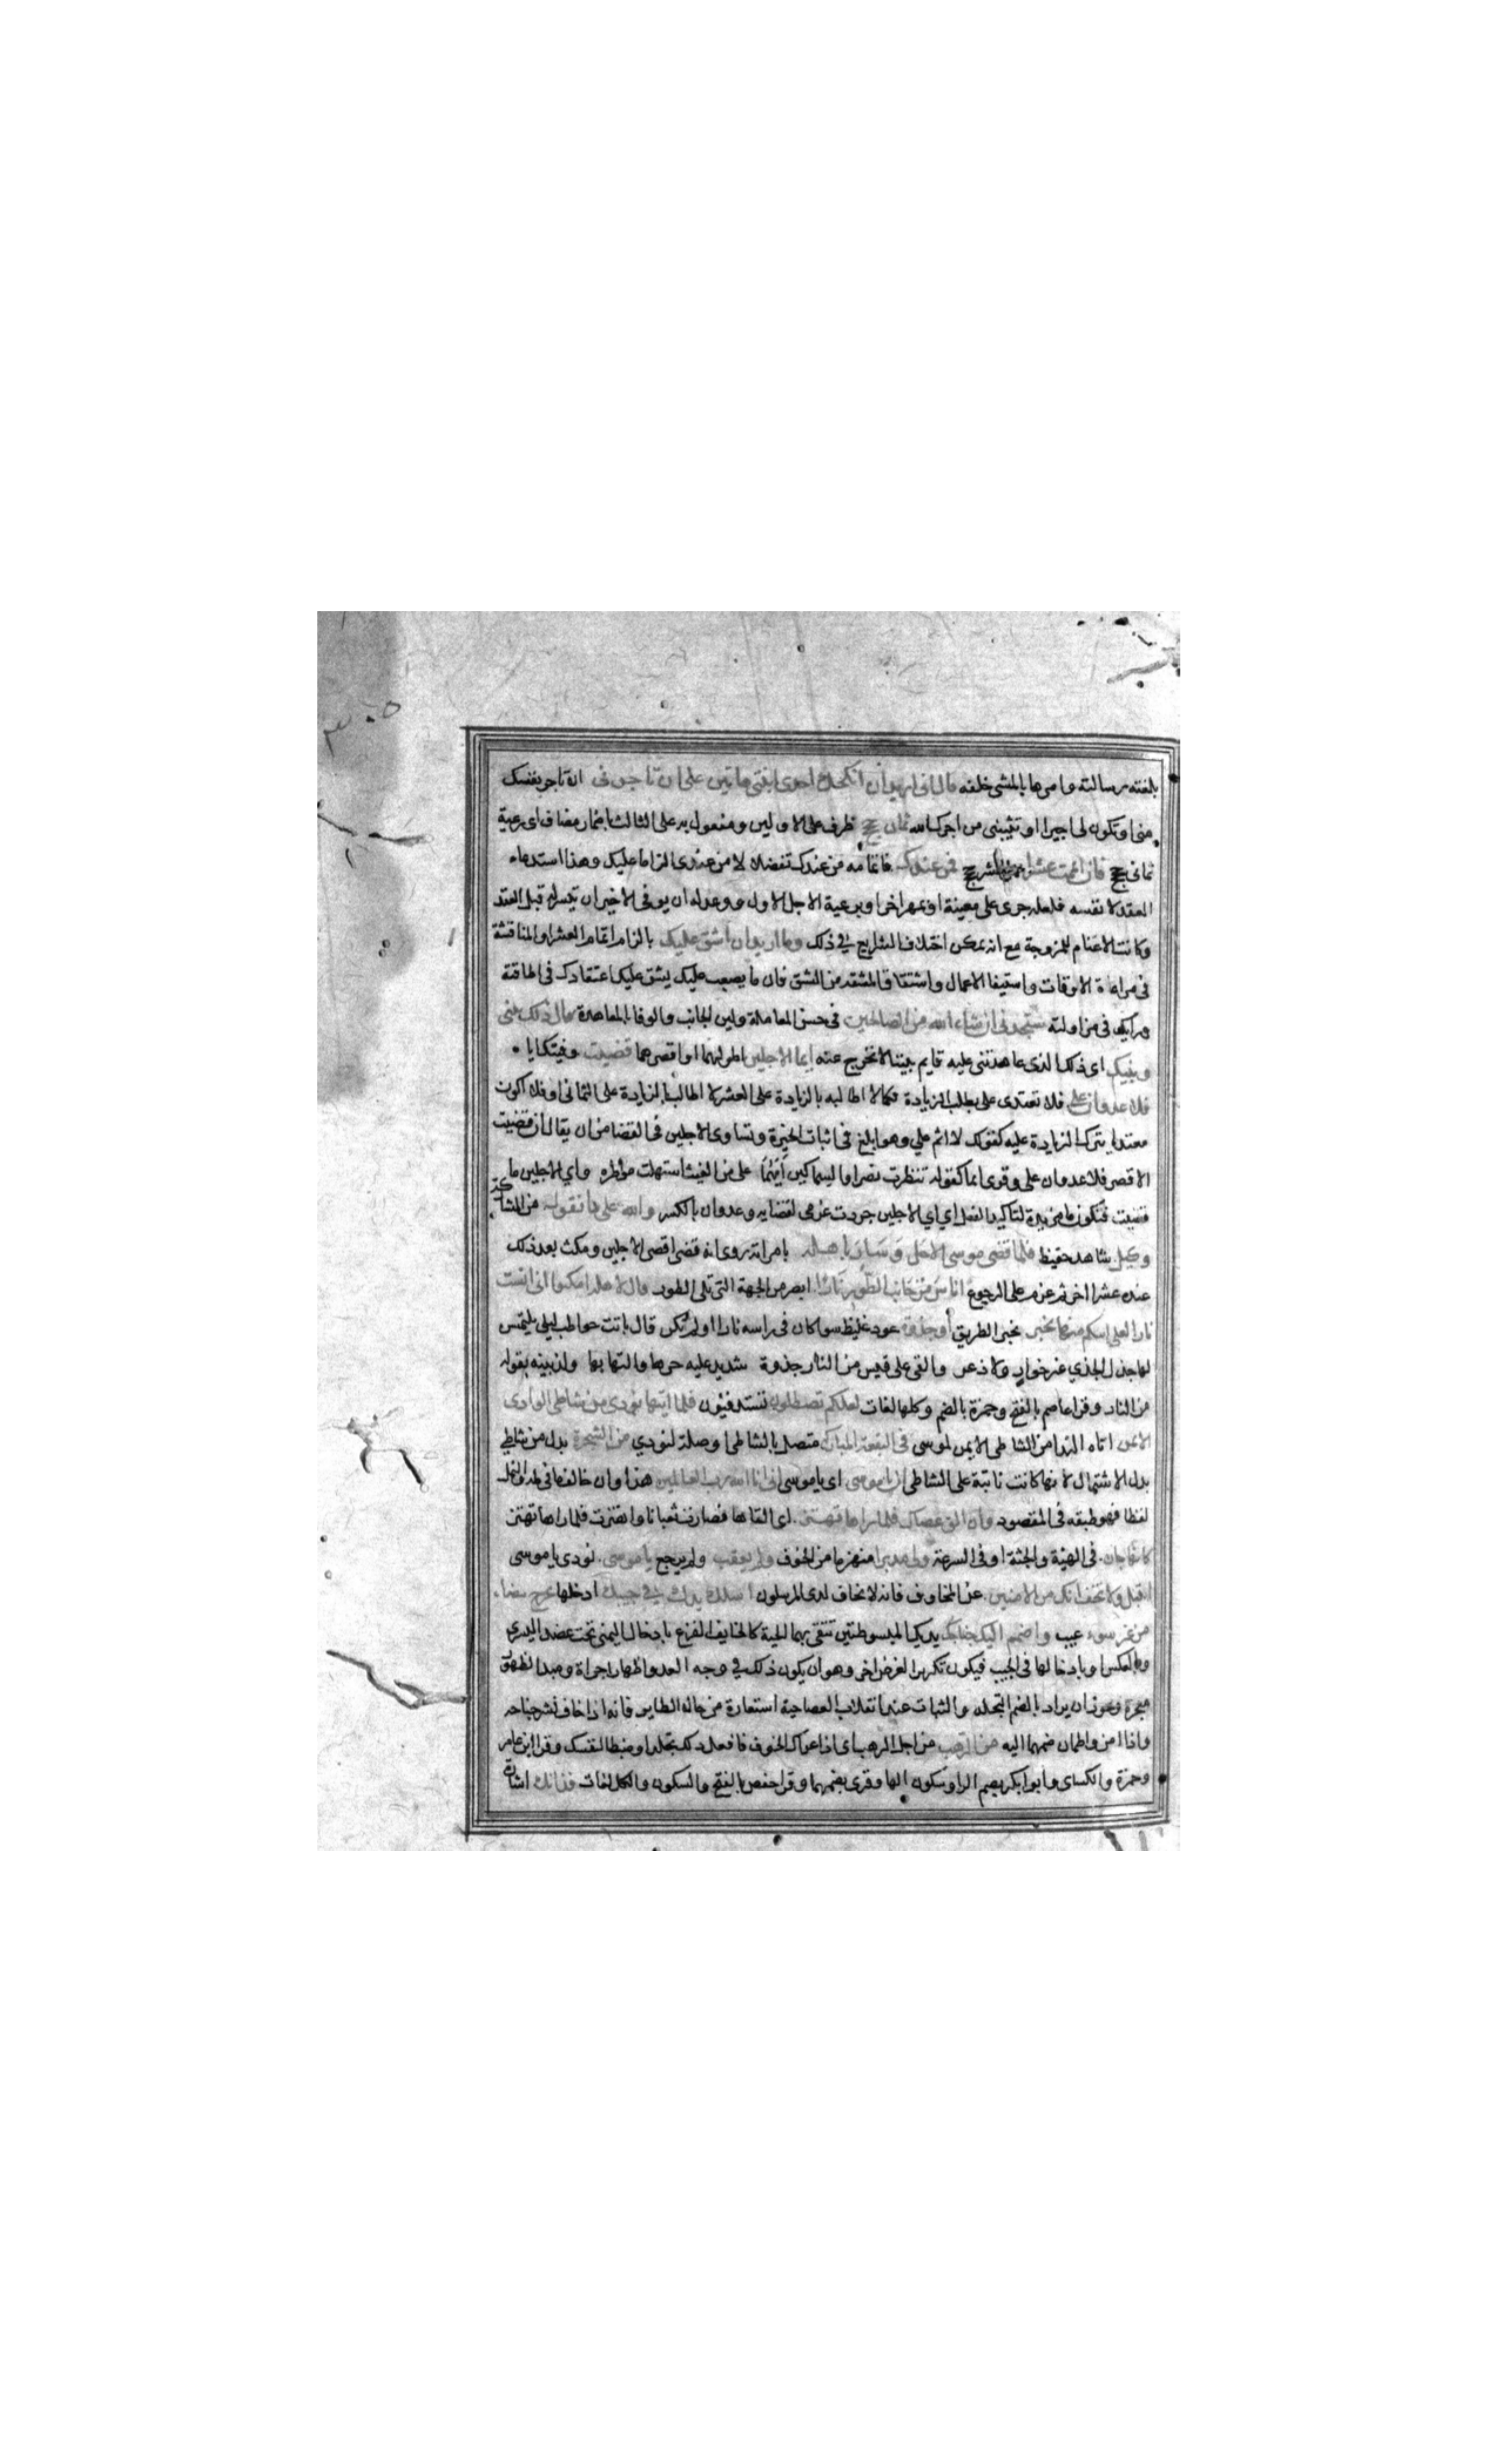 بلغته رسالته وامرها بالمشى خلفه قال انى اريد ان انكحك احدى ابنتى هاتين على ان تاجرنى ان تاجر نفسك
منى او تكون لى اجيرا او تثيبنى من اجرك الله ثمان حجج ظرف على الاولين ومفعول به على الثالث باضمار مضاف اى رعية
ثمانى حجج فان اتممت عشرا عشر حجج فمن عندك فاتمامه من عندك تفضلا لا من عندى الزاما عليك وهذا استدعاء
العقد لا نفسه فلعله جرى على معينة او بمهر اخر او برعية الاجل الاول ووعد له ان يوفى الاخير ان تيسر له قبل العقد
وكانت الاغنام للمزوجة مع انه يمكن اختلاف الشرايع في ذلك وما اريد ان اشق عليك بالزام اتمام العشر او المناقشة
فى مراعاة الاوقات واستيفا الاعمال واشتقاق المشقة من الشق فان ما يصعب عليك يشق عليك اعتقادك فى اطاقته
ورايك فى مزاولته ستجدنى ان شاء الله من الصالحين فى حسن المعاملة ولين الجانب والوفا بالمعاهدة قال ذلك بينى
وبينك اى ذلك الذى عاهدتنى عليه قايم بيننا لا نخرج عنه ايما الاجلين اطولهما او اقصرهما قضيت وفيتك اياه
فلا عدوان على فلا تعتدى على بطلب الزيادة فكما لا اطالب بالزيادة على العشر لا اطالب بالزيادة على الثمانى او فلا اكون
معتديا بترك الزيادة عليه كقولك لا اثم علي وهو ابلغ فى اثبات الخيرة وتساوى الاجلين فى القضا من ان يقال ان قضيت
الاقصر فلا عدوان على وقرى ايما كقوله تنظرت نصرا والسماكين ايهما على من الغيث استهلت مواطره واي الاجلين ما
قضيت فتكون ما مزيدة لتاكيد الفعل اي اي الاجلين جردت عزمى لقضايه وعدوان بالكسر والله على ما نقول من المشارطة
وكيل شاهد حفيظ فلما قضى موسى الاجل وسار باهله بامراته روى انه قضى اقصى الاجلين ومكث بعد ذلك
عنده عشرا اخر ثم عزم على الرجوع انس من جانب الطور نارا ابصر من الجهة التى تلى الطور قال لاهله امكثوا انى انست
نارا لعلى اتيكم منها بخبر بخبر الطريق او جذوة عود غليظ سوا كان فى راسه نارا او لم تكن قال باتت حواطب ليلى يلتمسن
لها جزل الجذي غير خوار ولا دعر والقى على قبس من النار جذوة شديد عليه حرها والتهابها ولذ بينه بقوله
من النار وقرا عاصم بالفتح وحمزة بالضم وكلها لغات لعلكم تصطلون تستدفئون فلما اتيها نودى من شاطى الوادى
الايمن اتاه الندا من الشاطى الايمن لموسى فى البقعة المباركة متصل بالشاطى او صلة لنودي من الشجرة بدل من شاطي
بدل الاشتمال لانها كانت نابتة على الشاطى ان يا موسى اى يا موسى انى انا الله رب العالمين هذا وان خالف ما فى طه والنمل
لفظا فهو طبقه فى المقصود وان الق عصاك فلما راها تهتز اى القاها فصارت ثعبانا واهتزت فلما راها تهتز
كانها جان فى الهيئة والجثة او فى السرعة ولى مدبرا منهزما من الخوف ولم يعقب ولم يرجع يا موسى نودى يا موسى
اقبل ولا تخف انك من الامنين عن المخاوف فانه لا يخاف لدى المرسلون اسلك يدك في جيبك ادخلها تخرج بيضاء
من غير سوء عيب واضمم اليك جناحك يديك المبسوطتين تتقى بهما الحية كالخايف الفزع بادخال اليمنى تحت عضد اليسرى
وبالعكس او بادخالها فى الجيب فيكون تكريرا لغرض اخر وهو ان يكون ذلك في وجه العدو اظهار جراة ومبدا لظهور
معجزة ويجوز ان يراد بالضم التجلد والثبات عند انقلاب العصا حية استعارة من حال الطاير فانه اذا خاف نشر جناحيه
واذا امن واطمان ضمهما اليه من الرهب من اجل الرهب اى اذا عراك الخوف فافعل ذلك تجلدا وضبطا لنفسك وقرا ابن عامر
وحمزة والكساى وابو بكر بضم الرا وسكون الها وقرى بضمهما وقرا حفص بالفتح والسكون والكل لغات فذانك اشارة